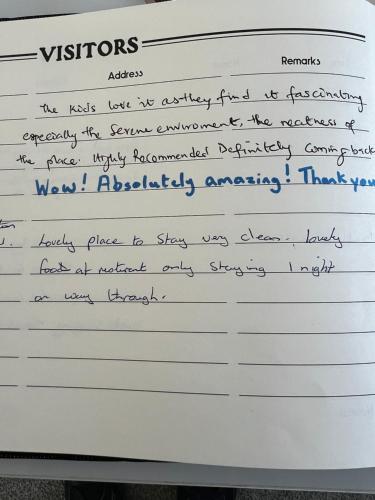 VISITORS
Address Remarks
The kids love it as they find it fascinating
especially the serene enviroment, the neatness of
the place. Highly Recommended Definitely Coming back
Wow! Absolutely amazing! Thank you
Lovely place to stay very clean. lovely
food at only staying 1 night
on way through.